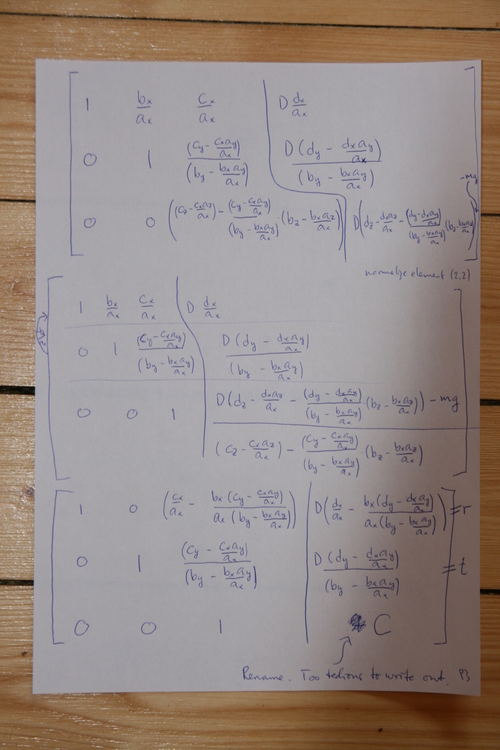 1 bx/ax cx/ax | D dx/ax
0 1 (cy - cxay/ax)/(by - bxay/ax) | D(dy - dxay/ax)/(by - bxay/ax)
0 0 ((cz - cxaz/ax) - (cy - cxay/ax)/(by - bxay/ax) (bz - bxaz/ax)) | D(dz - dxaz/ax - (dy - dxay/ax)/(by - bxay/ax) (bz - bxaz/ax)) -mg
normalize element (2,2)
1 bx/ax cx/ax | D dx/ax
0 1 (cy - cxay/ax)/(by - bxay/ax) | D(dy - dxay/ax)/(by - bxay/ax)
0 0 1 | (D(dz - dxaz/ax - (dy - dxay/ax)/(by - bxay/ax) (bz - bxaz/ax)) - mg)/((cz - cxaz/ax) - (cy - cxay/ax)/(by - bxay/ax) (bz - bxaz/ax))
1 0 (cx/ax - bx(cy - cxay/ax)/ax(by - bxay/ax)) | D(dx/ax - bx(dy - dxay/ax)/ax(by - bxay/ax)) = r
0 1 (cy - cxay/ax)/(by - bxay/ax) | D(dy - dxay/ax)/(by - bxay/ax) = t
0 0 1 | C
Rename. Too tedious to write out.